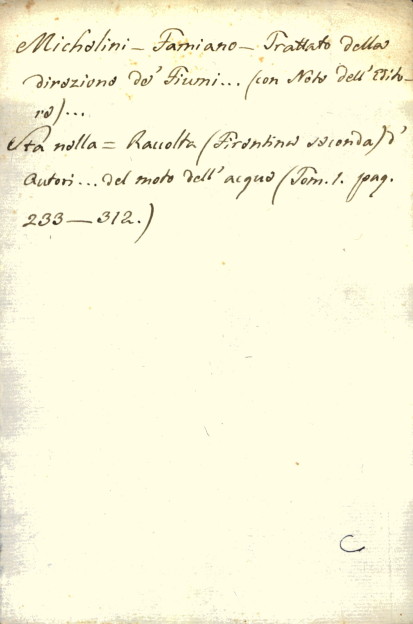 Michelini - Famiano - Trattato della
direzione de' Fiumi... (con Note dell' Edito-
re)...
Sta nella = Raccolta (Fiorentina seconda) d'
Autori... del moto dell' acque (Tom. 1. pag.
233-312.)
C